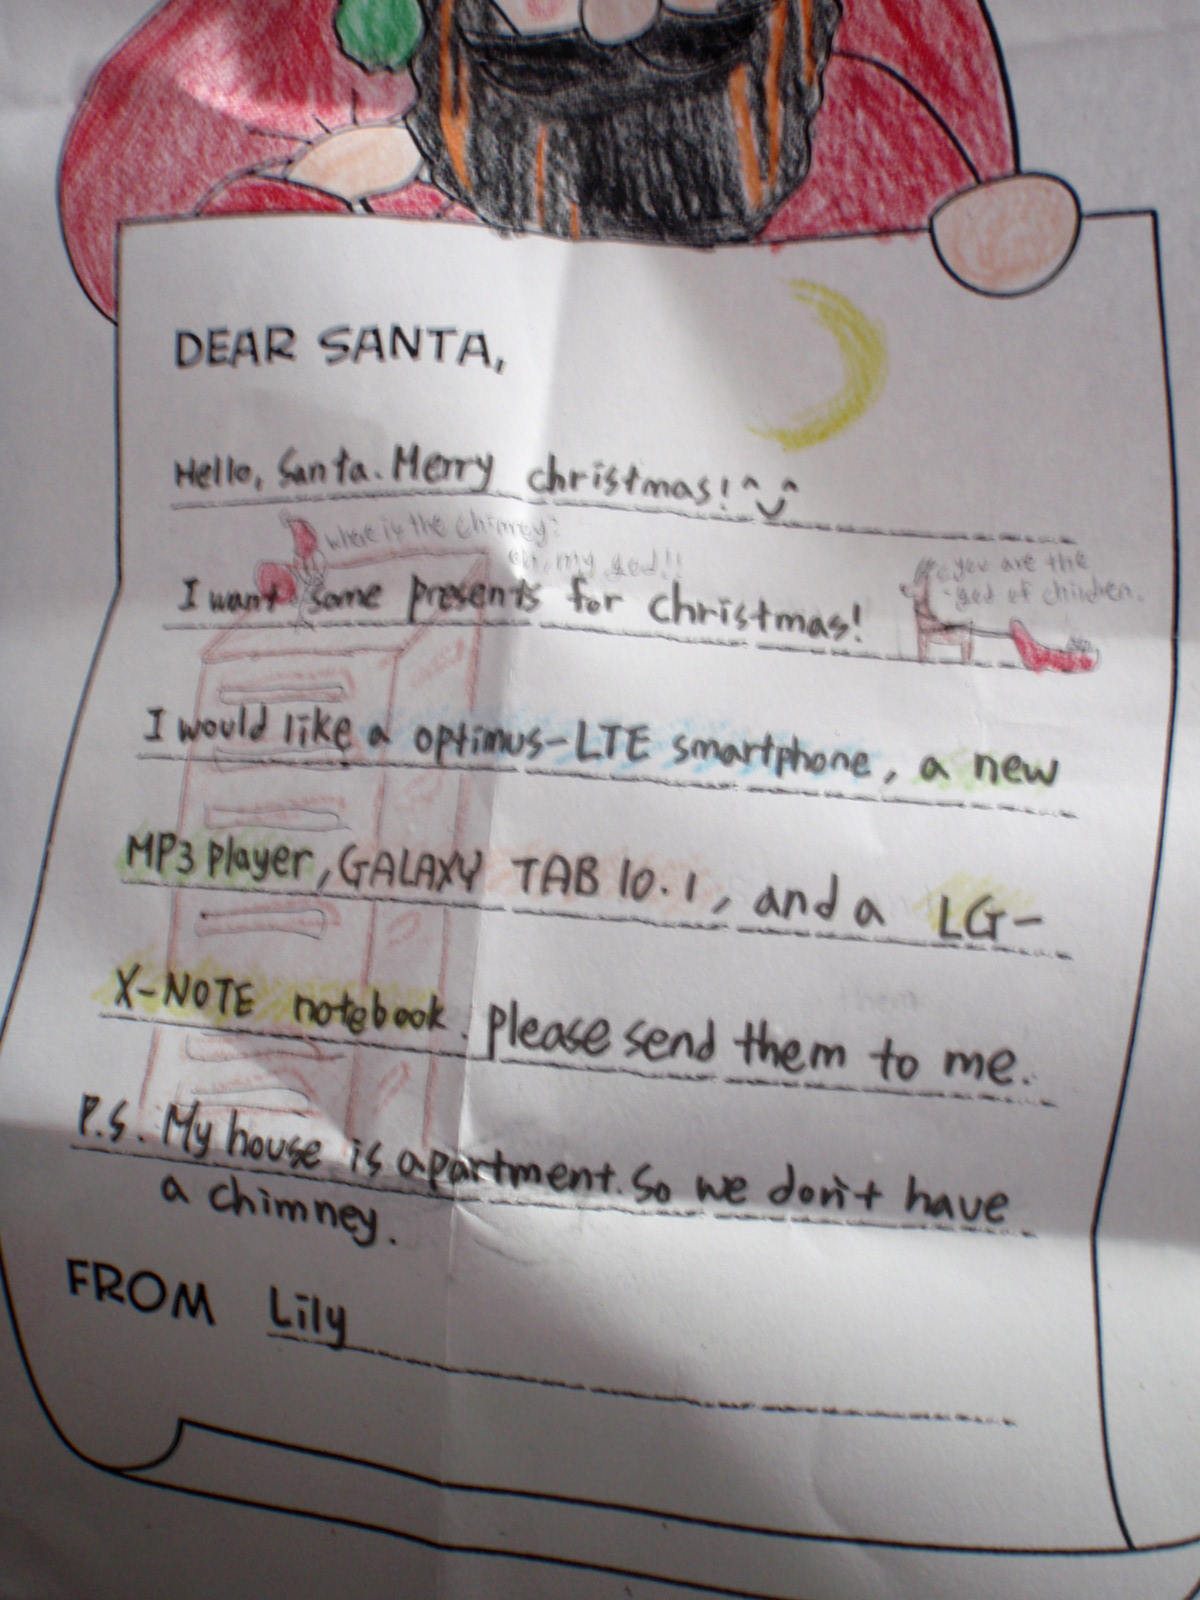 DEAR SANTA,
Hello, Santa. Merry christmas! ^‿^
where is the chimney?
oh, my god!!
you are the
god of children.
I want some presents for christmas!
I would like a optimus-LTE smartphone, a new
MP3 player, GALAXY TAB 10.1, and a LG-
X-NOTE notebook. please send them to me.
P.S. My house is apartment. So we don't have
a chimney.
FROM Lily